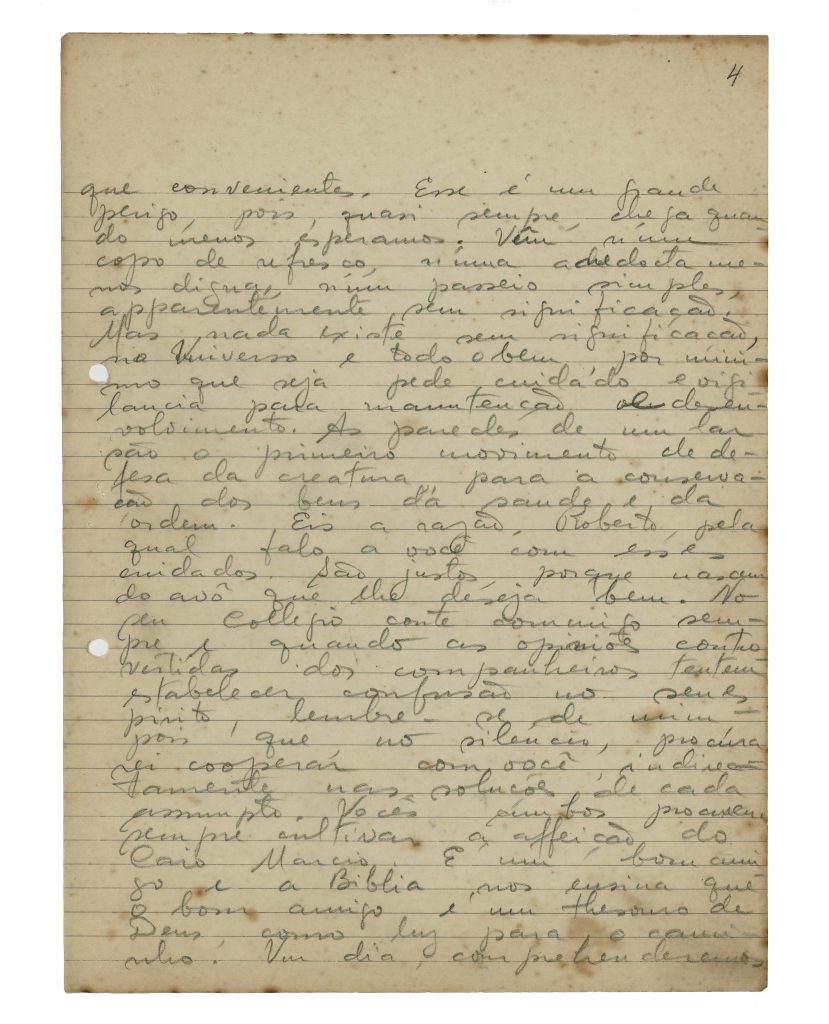 4
que convenientes. Esse é um grande
perigo, pois, quasi sempre, chega quan-
do menos esperamos. Vêm núm
copo de refresco, núma anedocta me-
nos digna, núm passeio simples,
apparentemente sem significação.
Mas nada existe sem significação,
no Universo e todo o bem, por mini-
mo que seja pede cuidádo e vigi
lancia para manutenção e desen-
volvimento. As paredes de um lar
são o primeiro movimento de de-
fesa da creatura, para a conserva-
ção dos bens da saude e da
ordem. Eis a razão, Roberto, pela
qual falo a você com esses
cuidados. São justos, porque nascem
do avô que lhe deseja bem. No
seu Collegio conte commigo sem-
pre e quando as opiniões contro
vertidas dos companheiros tentem
estabelecer confusão no seu es
pirito, lembre-se de mim
pois que, no silencio, procura
rei cooperar com você, indirec-
tamente nas soluções de cada
assumpto. Vocês ámbos procurem
sempre cultivar a affeição do
Caio Marcio. É um bom ami
go e a Biblia nos ensina que
o bom amigo é um thesouro de
Deus, como luz para o cami-
nho. Um dia, comprehenderemos